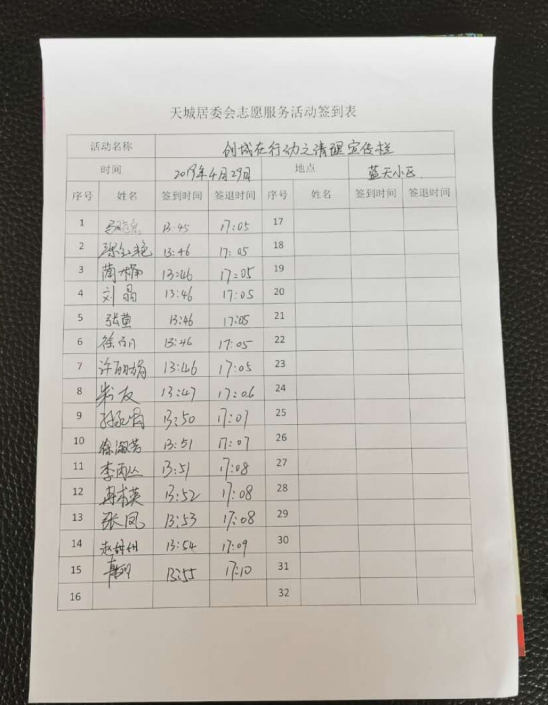 天城居委会志愿服务活动签到表
活动名称 创城在行动之清理宣传栏
时间 2019年4月29日 地点 蓝天小区
序号 姓名 签到时间 签退时间 序号 姓名 签到时间 签退时间
1 13:45 17:05 17
2 13:46 17:05 18
3 13:46 17:05 19
4 刘晶 13:46 17:05 20
5 张萱 13:46 17:05 21
6 徐 13:46 17:05 22
7 许 13:46 17:05 23
8 朱友 13:47 17:06 24
9 13:50 17:07 25
10 徐淑芳 13:51 17:07 26
11 李丙丛 13:51 17:08 27
12 13:52 17:08 28
13 张凤 13:53 17:08 29
14 赵 13:54 17:09 30
15 13:55 17:10 31
16 32